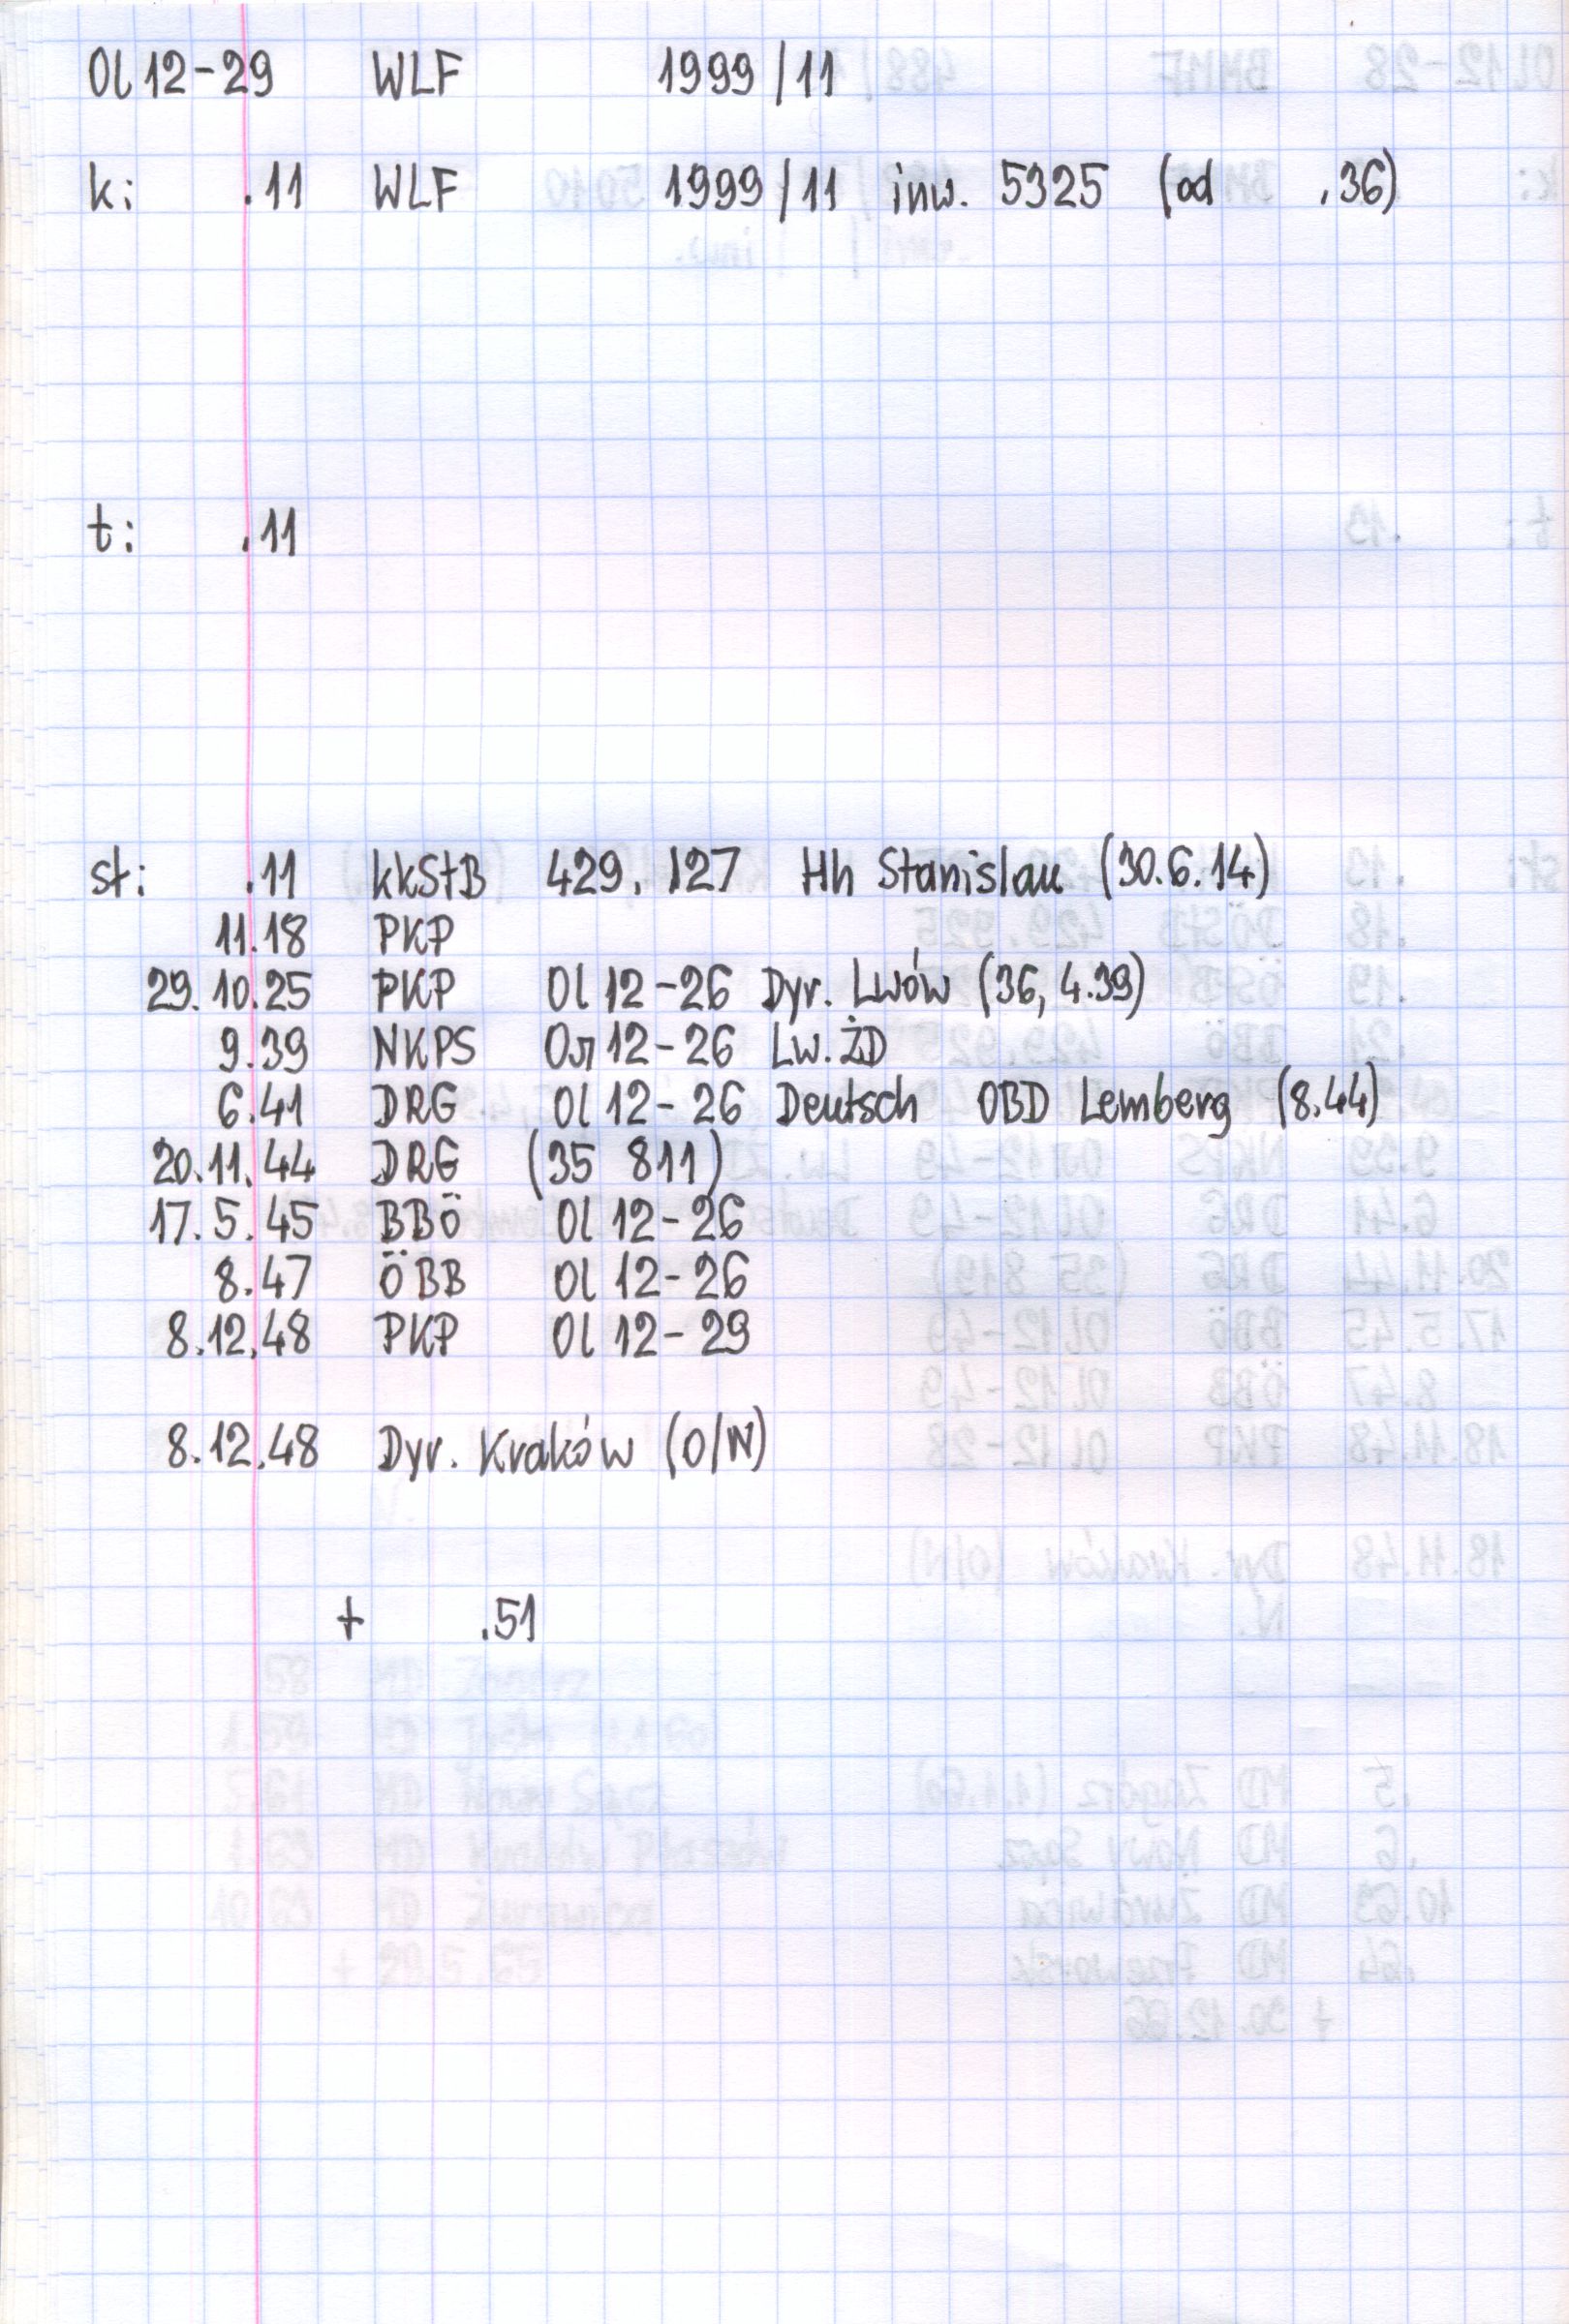 Ol 12-29 WLF 1999/11
k: .11 WLF 1999/11 inw. 5325 (od .36)
t: .11
st: .11 kkStB 429.127 Hh Stanislau (30.6.14)
11.18 PKP
29.10.25 PKP Ol 12-26 Dyr. Lwów (36, 4.39)
9.39 NKPS Ол 12-26 Lw. ŻD
6.41 DRG Ol 12-26 Deutsch OBD Lemberg (8.44)
20.11.44 DRG (35 811)
17.5.45 BBÖ Ol 12-26
8.47 ÖBB Ol 12-26
8.12.48 PKP Ol 12-29
8.12.48 Dyr. Kraków (O/N)
+ .51